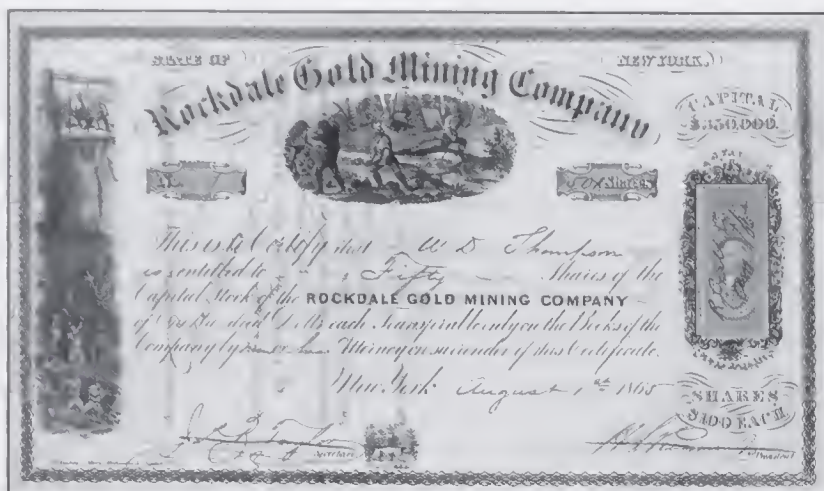 STATE OF NEW YORK.
Rockdale Gold Mining Company,
CAPITAL
$350,000.
No.
50 Shares
This is to Certify that W. D. Thompson
is entitled to Fifty Shares of the
Capital Stock of the ROCKDALE GOLD MINING COMPANY
of One Hundred Dolls. each Transferable only on the Books of the
Company by him or his Attorney on surrender of this Certificate.
New York August 1st 1865
SHARES
$100 EACH
Secretary
President